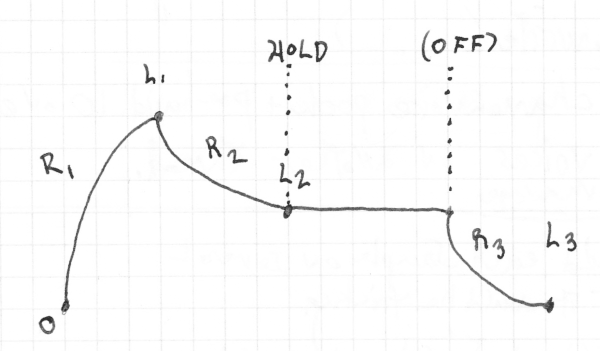 HOLD (OFF)
L1
R1 R2
L2
R3 L3
0